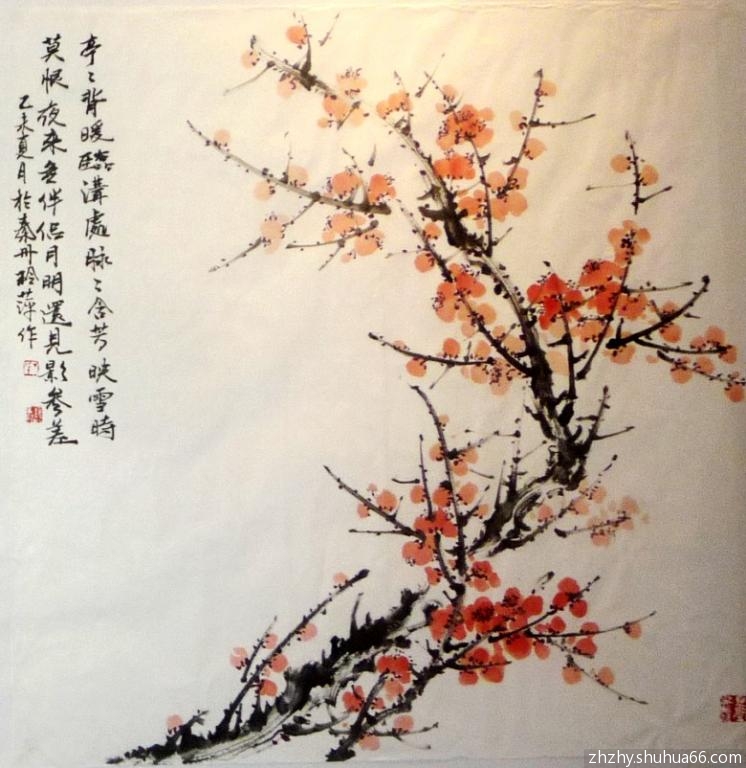 亭〻背暖臨溝處脉〻含芳映雪時
莫恨夜来無伴侣月明還見影参差
乙未夏月於秦丹 萍作
zhzhy.shuhua66.com